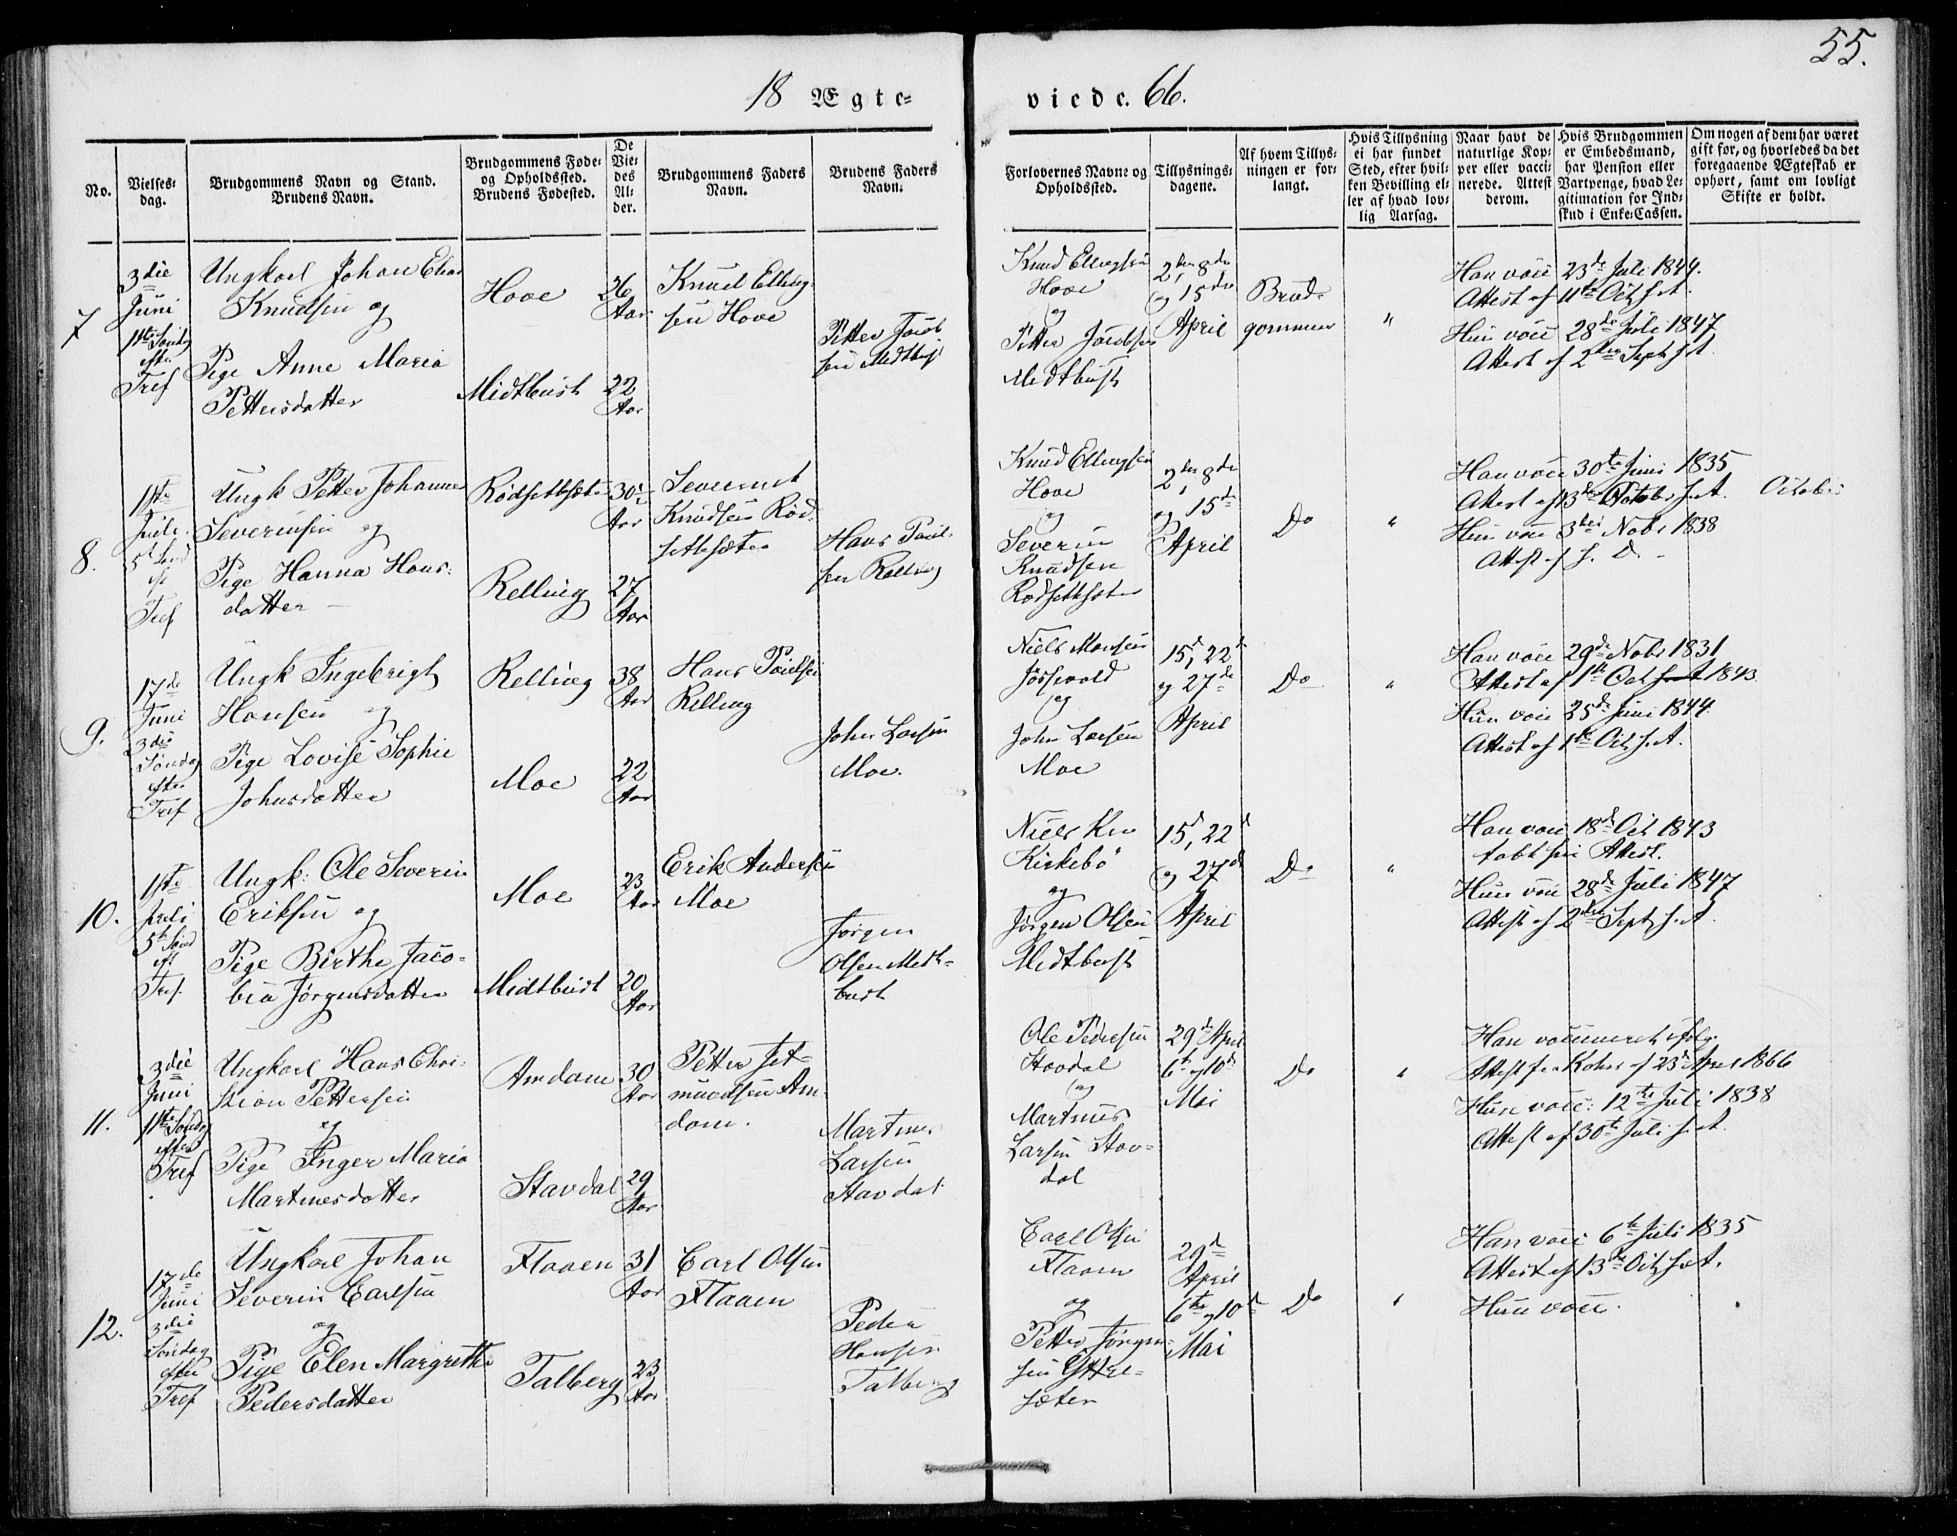 55.
18 Ægte=
viede. 66.
No.
Vielses=
dag.
Brudgommens Navn og Stand.
Brudens Navn.
Brudgommens Føde=
og Opholdssted.
Brudens Fødested.
De
Vie=
des
Al=
der.
Brudgommens Faders
Navn.
Brudens Faders
Navn.
Forlovernes Navne og
Opholdssted.
Tillysnings=
dagene.
Af hvem Tillys=
ningen er for=
langt.
Hvis Tillysning
ei har fundet
Sted, efter hvil=
ken Bevilling el=
ler af hvad lov=
lig Aarsag.
Naar havt de
naturlige Kop=
per eller vacci=
nerede. Attest
derom.
Hvis Brudgommen
er Embedsmand,
har Pension eller
Vartpenge, hvad Le=
gitimation for Ind=
skud i Enke=Cassen.
Om nogen af dem har været
gift før, og hvorledes da det
foregaaende Ægteskab er
ophørt, samt om lovligt
Skifte er holdt.
7
3die
Juni
11te Sønd
efter
Tref
Ungkarl Johan
Knudsen og
Pige Anne Maria
Pettersdatter
Hove
Midtbust
26
Aar
22
Aar
Knud Elling
sen Hove
Petter Jacob
sen Midtbust
Knud Ellingsen
Hove
og
Petter Jacobsen
Midtbust
2den, 8de
og 15de
April
Brud=
gommen
"
Han vacc 23de Juli 1844.
Attest af 11te Oct s. A.
Hun vacc 28de Juli 1847
Attest af 2den Sept s. A.
8.
1ste
Juli
5te Sønd
ef
Tref
Ungk Petter Johannes
Severinsen og
Pige Hanna Hans=
datter
Rødsethsæter
Relling
30
Aar
27
Aar
Severin
Knudsen Rød=
sethsæter
Hans Paul=
sen Relling
Knud Ellingsen
Hove
og
Severin
Knudsen
Rødsethsæter
2den, 8de
og 15de
April
Do
"
Han vacc 30te Juni 1835
Attest af 13de October s. A. October
Hun vacc 3die Nobr 1838
Attest af s. D.
9.
17de
Juni
3die
Søndag
efter
Tref
Ungk Ingebrigt
Hansen og
Pige Lovise Sophie
Johnsdatter
Relling
Moe
38
Aar
22
Aar
Hans Paulsen
Relling
John Larsen
Moe.
Niels Monsen
og
John Larsen
Moe
15d, 22d
og 27de
April
Do
"
Han vacc 29de Nobr 1831
Attest af 1ste Oct 1843
Hun vacc 25de Juni 1844
Attest af 1ste Oct s. A.
10.
1ste
Juli
5te Sønd
ef
Tref.
Ungk: Ole Severin
Eriksen og
Pige Birthe Jaco=
bia Jørgensdatter
Moe
Midtbust
23
Aar
20
Aar
Erik Andersen
Moe
Jørgen
Olsen Midt=
bust
Niels Kn
Kirkebø
og
Jørgen Olsen
Midtbust
15d, 22d
og 27de
April
Do
"
Han vacc 18de Oct 1843
tabt sin Attest.
Hun vacc 28de Juli 1847
Attest af 2den Sept s. A.
11.
3die
Juni
11te Søndag
efter
Tref
Ungkarl Hans Chri=
stian Pettersen
og
Pige Inger Maria
Martinusdatter
Amdam
Stavdal
30
Aar
29
Aar
Petter
Am=
dam.
Martinus
Larsen
Stavdal
Ole Pedersen
Stavdal
og
Martinus
Larsen Stav=
dal
29de April
6te og 10de
Mai
Do
"
Han vaccineret ifølge
Attest fra af 23de April 1866
Hun vacc: 12te Juli 1838
Attest af 30te Juli s. A.
12.
17de
Juni
3die
Søndag
efter
Tref
Ungkarl Johan
Severin Carlsen
og
Pige Elen Margrethe
Pedersdatter
Flaaen
Talberg
31
Aar
23
Aar
Carl Olsen
Flaaen
Peder
Hansen
Talberg
Carl Olsen
Flaaen
og
Petter Jørgen=
sen Ytter=
sæter
29de
April
6te og 10de
Mai
Do
"
Han vacc 6te Juli 1835
Attest af 13de Oct s. A.
Hun vacc.